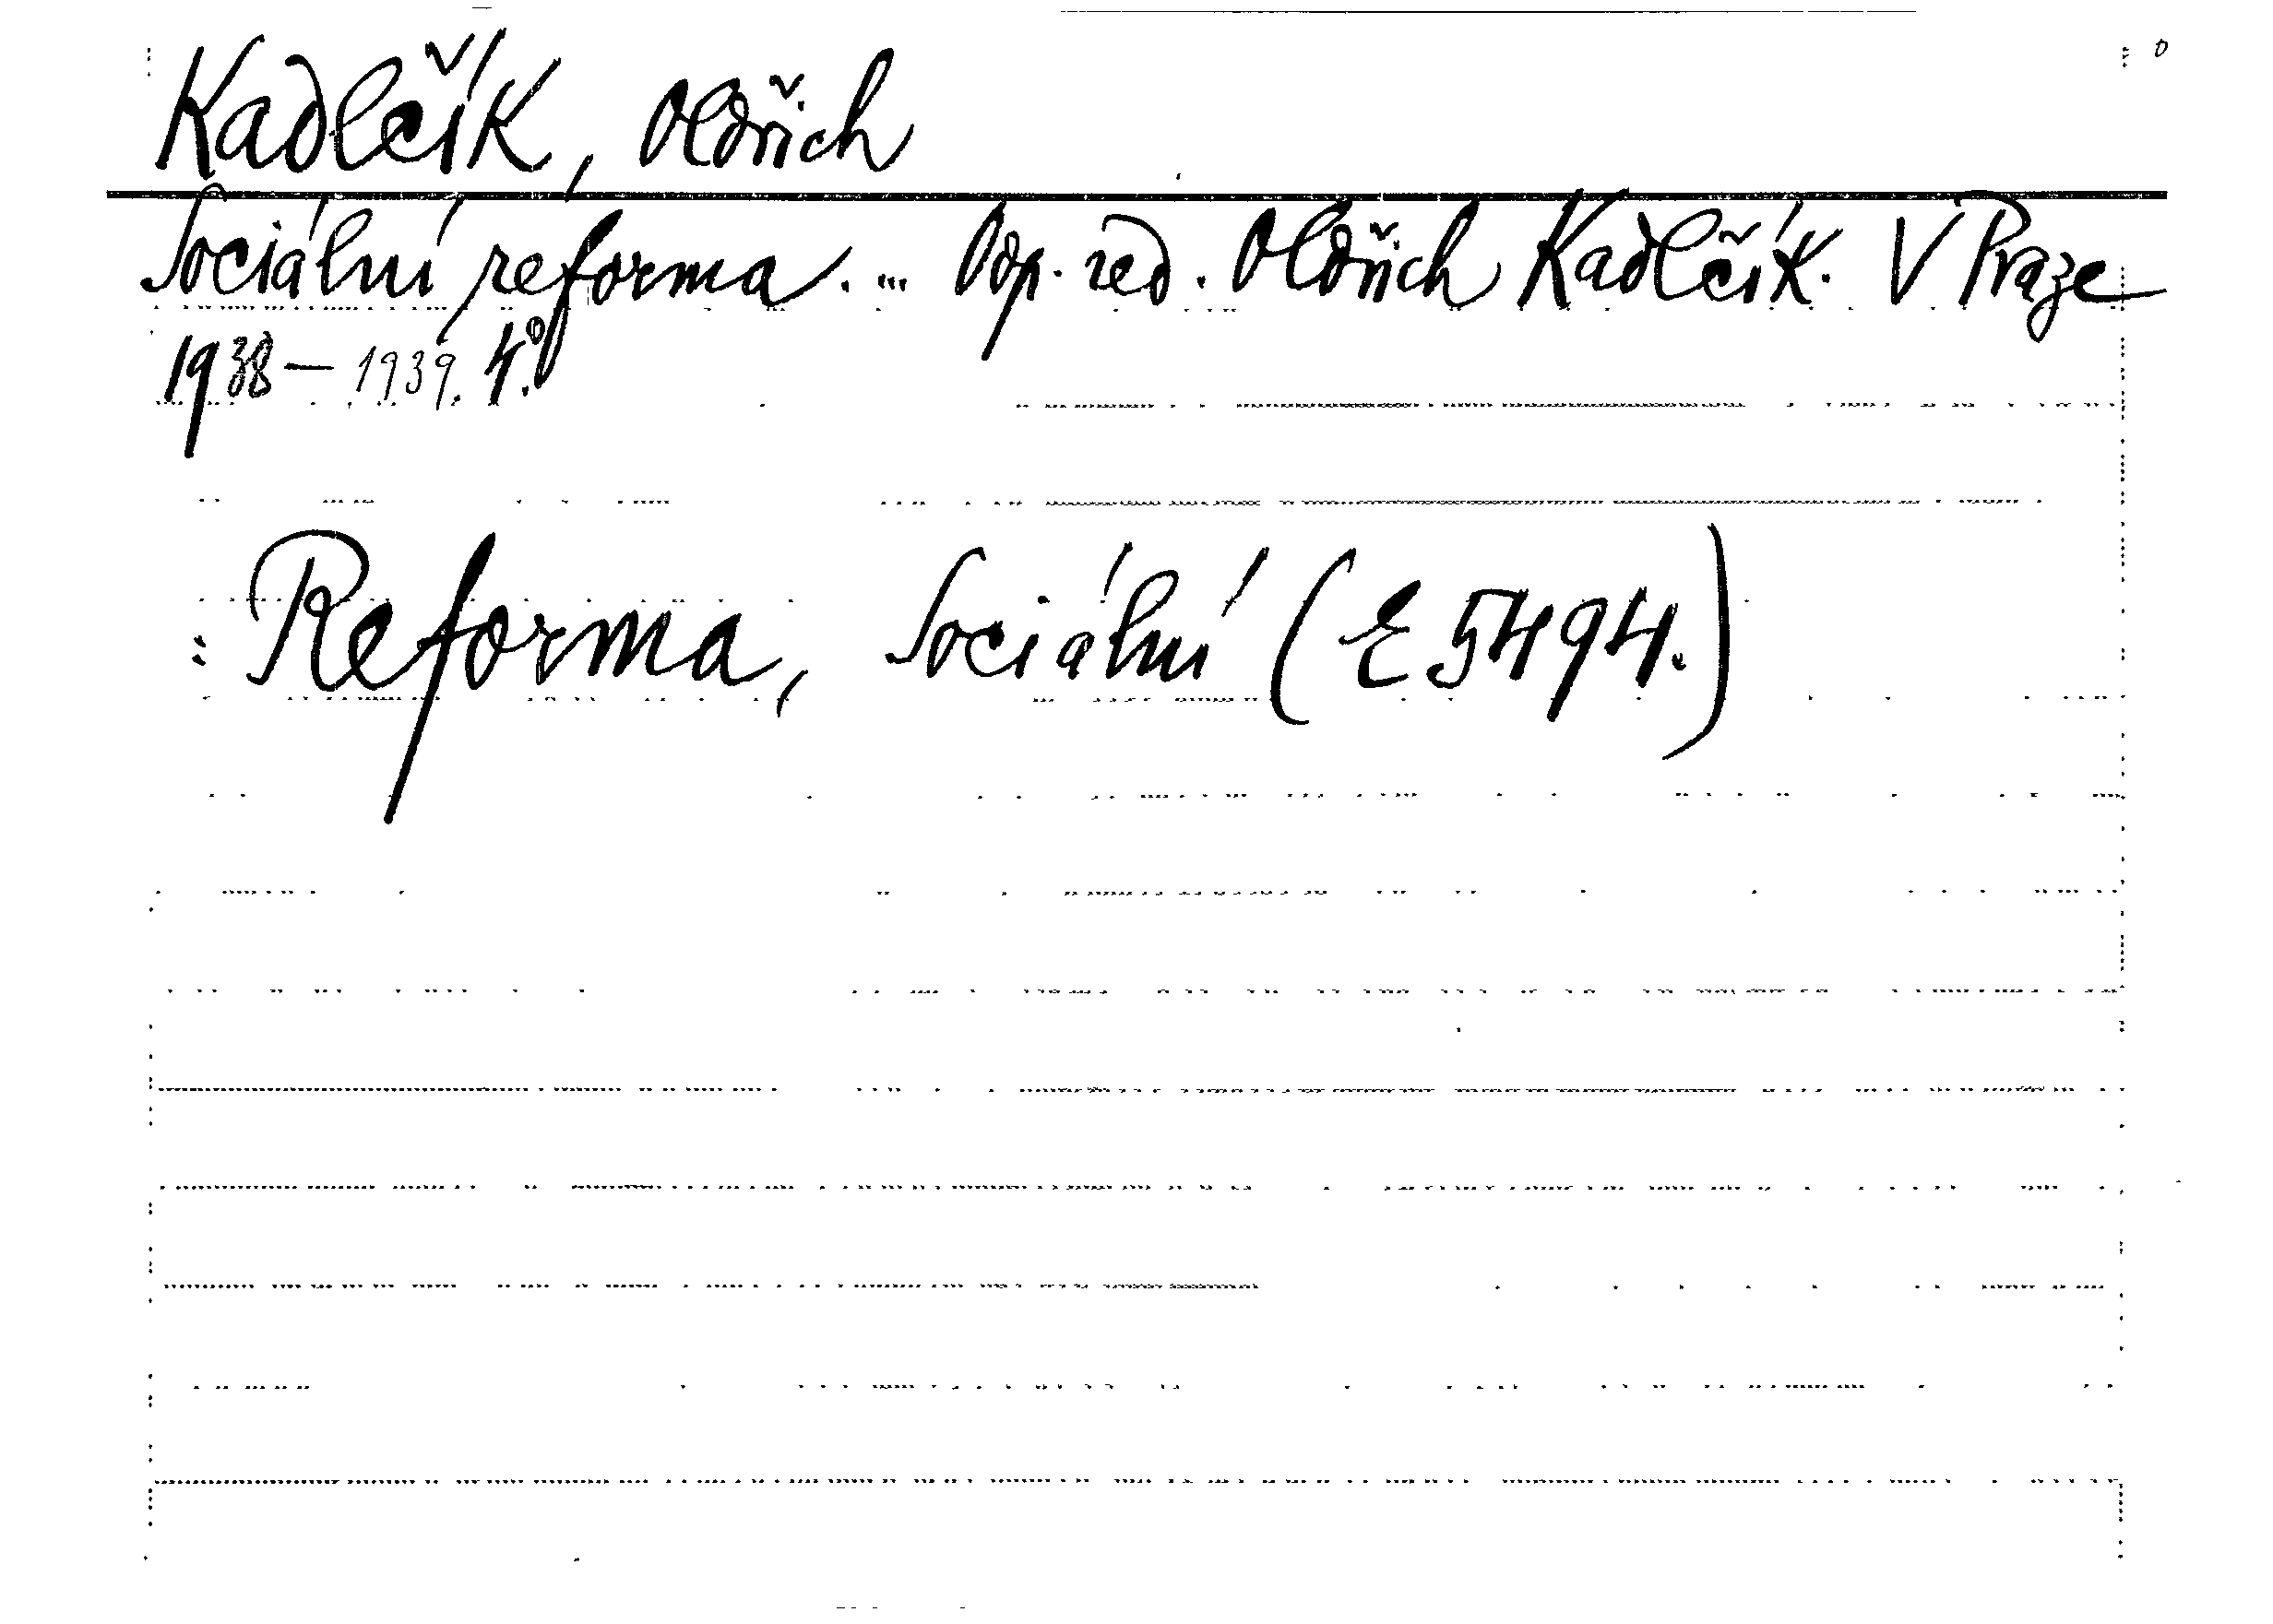 Kadlčík, Oldřich
Sociální reforma. ... Odp. red. Oldřich Kadlčík. V Praze
1938 – 1939. 4.°
: Reforma, Sociální (E 5494.)